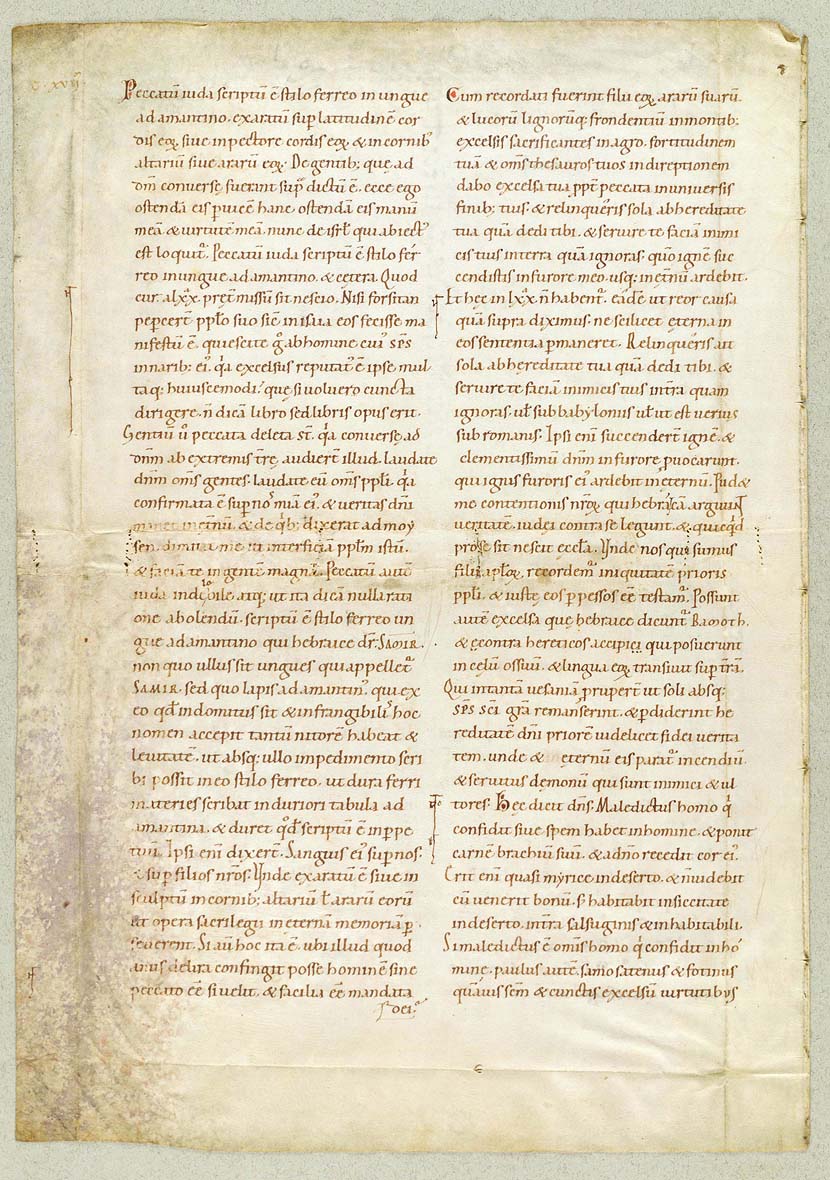 c. xvij
Peccatū iuda scriptū ē stilo ferreo in ungue
adamantino. exaratū sup latitudinē cor
dis eoꝝ. siue in pectore cordis eoꝝ & in cornibꝰ
altariū siue ararū eoꝝ. De gentib; que ad
dm̄ conuerse fuerant supͥ dictū ē. ecce ego
ostendā eis puicē hanc. ostendā eis manū
meā. & uirtutē meā. nunc de isrł qui abiectꝰ
est loquitᷣ. Peccatū iuda scriptū ē stilo fer
reo in ungue adamantino. & cetera. Quod
cur a lxx. pretmissū sit nescio. Nisi forsitan
pepcert ppło suo sic in isaia eos fecisse ma
nifestū ē. quiescite g̊ ab homine cuiꝰ sps̄
in narib; eiꝰ. q̇a excelsus reputatᷣ ē ipse mul
taq; huiuscemodi. que si uoluero cuncta
dirigere. n̄ dicā libro sed libris opus erit.
Gentiū ů peccata deleta st̄. q̇a conuerse ad
dnm̄ ab extremis tr̄e. audiert illud. laudate
dnm̄ om̄s gentes. laudate eū om̄s ppłi. q̇a
confirmata ē sup nos mia eiꝰ. & ueritas dn̄i
manet in etnū. & de q̇b; dixerat ad moy
sen. dimitte me ut interficiā pplm̄ istū.
& faciā te in gentē magnā. Peccatū autē
iuda indełbile. atq; ut ita dicā nulla rati
one abolendū. scriptū ē stilo ferreo un
gue adamantino qui hebraice dr̄. SAMIR.
non quo ullus sit ungues qui appelletᷣ
SAMIR. sed quo lapis adamantinꝰ. qui ex
eo qd̄ indomitus sit & infrangibilis hoc
nomen accepit tantū nitorē habeat &
leuitatē. ut absq; ullo impedimento scri
bi possit in eo stilo ferreo. ut dura ferri
materies scribat in duriori tabula ad
amantina. & duret qd̄ scriptū ē in ppe
tuū. Ipsi enī dixert. Sanguis eiꝰ sup nos.
& sup filios nr̄os. Unde exaratū ē siue in
sculptū in cornib; altariū ł ararū eorū
ut opera sacrilegii in eternā memoriā p
seuerent. Si aū hoc ita ē. ubi illud quod
anus delira confingit posse hominē sine
peccato eē si uelit. & facilia eē mandata
dei.
Cum recordati fuerint filii eoꝝ ararū suarū.
& lucorū lignorūq; frondentiū in montib;
excelsis sacrificantes in agro. fortitudinem
tuā & om̄s thesauros tuos in direptionem
dabo excelsa tua ppt peccata in uniuersis
finib; tuis. & relinqueris sola ab hereditate
tua quā dedi tibi. & seruire te faciā inimi
cis tuis in terra quā ignoras. quo ignē suc
cendistis in furore meo. usq; in etnū ardebit.
Et hec in lxx n̄ habentᷣ. eadē ut reor causa
quā supra diximus. ne scilicet eterna in
eos sententia pmaneret. Relinqueris ait
sola ab hereditate tua quā dedi tibi. &
seruire te faciā inimicis tuis in tra quam
ignoras. uł sub babyloniis uł ut est uerius
sub romanis. Ipsi enī succendert ignē. &
clementissimū dnm̄ in furorē puocarunt.
qui ignis furoris ei ardebit in eternū. Iude
me contentionis nr̄oꝝ qui hebraicā arguunt
ueritatē. iudei contra se legunt. & quicqd
prose sit nescit eccła. Unde nos qui sumus
filii apłoꝝ. recordemᷣ iniquitatē prioris
ppłi. & iuste eos ppessos eē testamᷣ. Possunt
autē excelsa que hebraice dicuntᷣ RAMOTH.
& econtra hereticos accipi. qui posuerunt
in celū os suū. & lingua eoꝝ transiuit sup trā.
Qui in tantā uesaniā prupert ut soli absq;
sps̄ sc̄i gr̄a remanserint. & pdiderint he
reditatē dn̄i priorē uidelicet fidei uerita
tem. unde & eternū eis paratᷣ incendiū.
& seruitus demonū qui sunt inimici & ul
tores. Hec dicit dn̄s. Maledictus homo q̇
confidit siue spem habet in homine. & ponit
carnē brachiū suū. & a dn̄o recedit cor eiꝰ.
Erit enī quasi myrice in deserto. & n̄ uidebit
cū uenerit bonū. s; habitabit in siccitate
in deserto. in tra salsuginis & inhabitabili.
Si maledictus ē om̄s homo q̇ confidit in ho
mine. paulus autē samosatenus & fotinus
quāuis sc̄m & cunctis excelsū uirtutibus